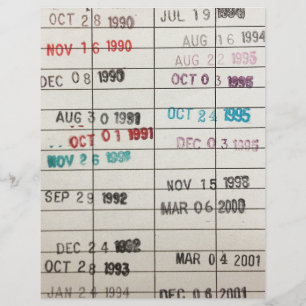 OCT 28 1990
NOV 16 1990
DEC 08 1990
AUG 30 1991
OCT 01 1991
NOV 26 1993
SEP 29 1992
DEC 24 1992
OCT 28 1993
JAN 24 1994
JUL 19
AUG 16 1994
AUG 22 1995
OCT 03 1995
OCT 24 1995
DEC 03 1995
NOV 15 1998
MAR 06 2000
MAR 04 2001
DEC 06 2001